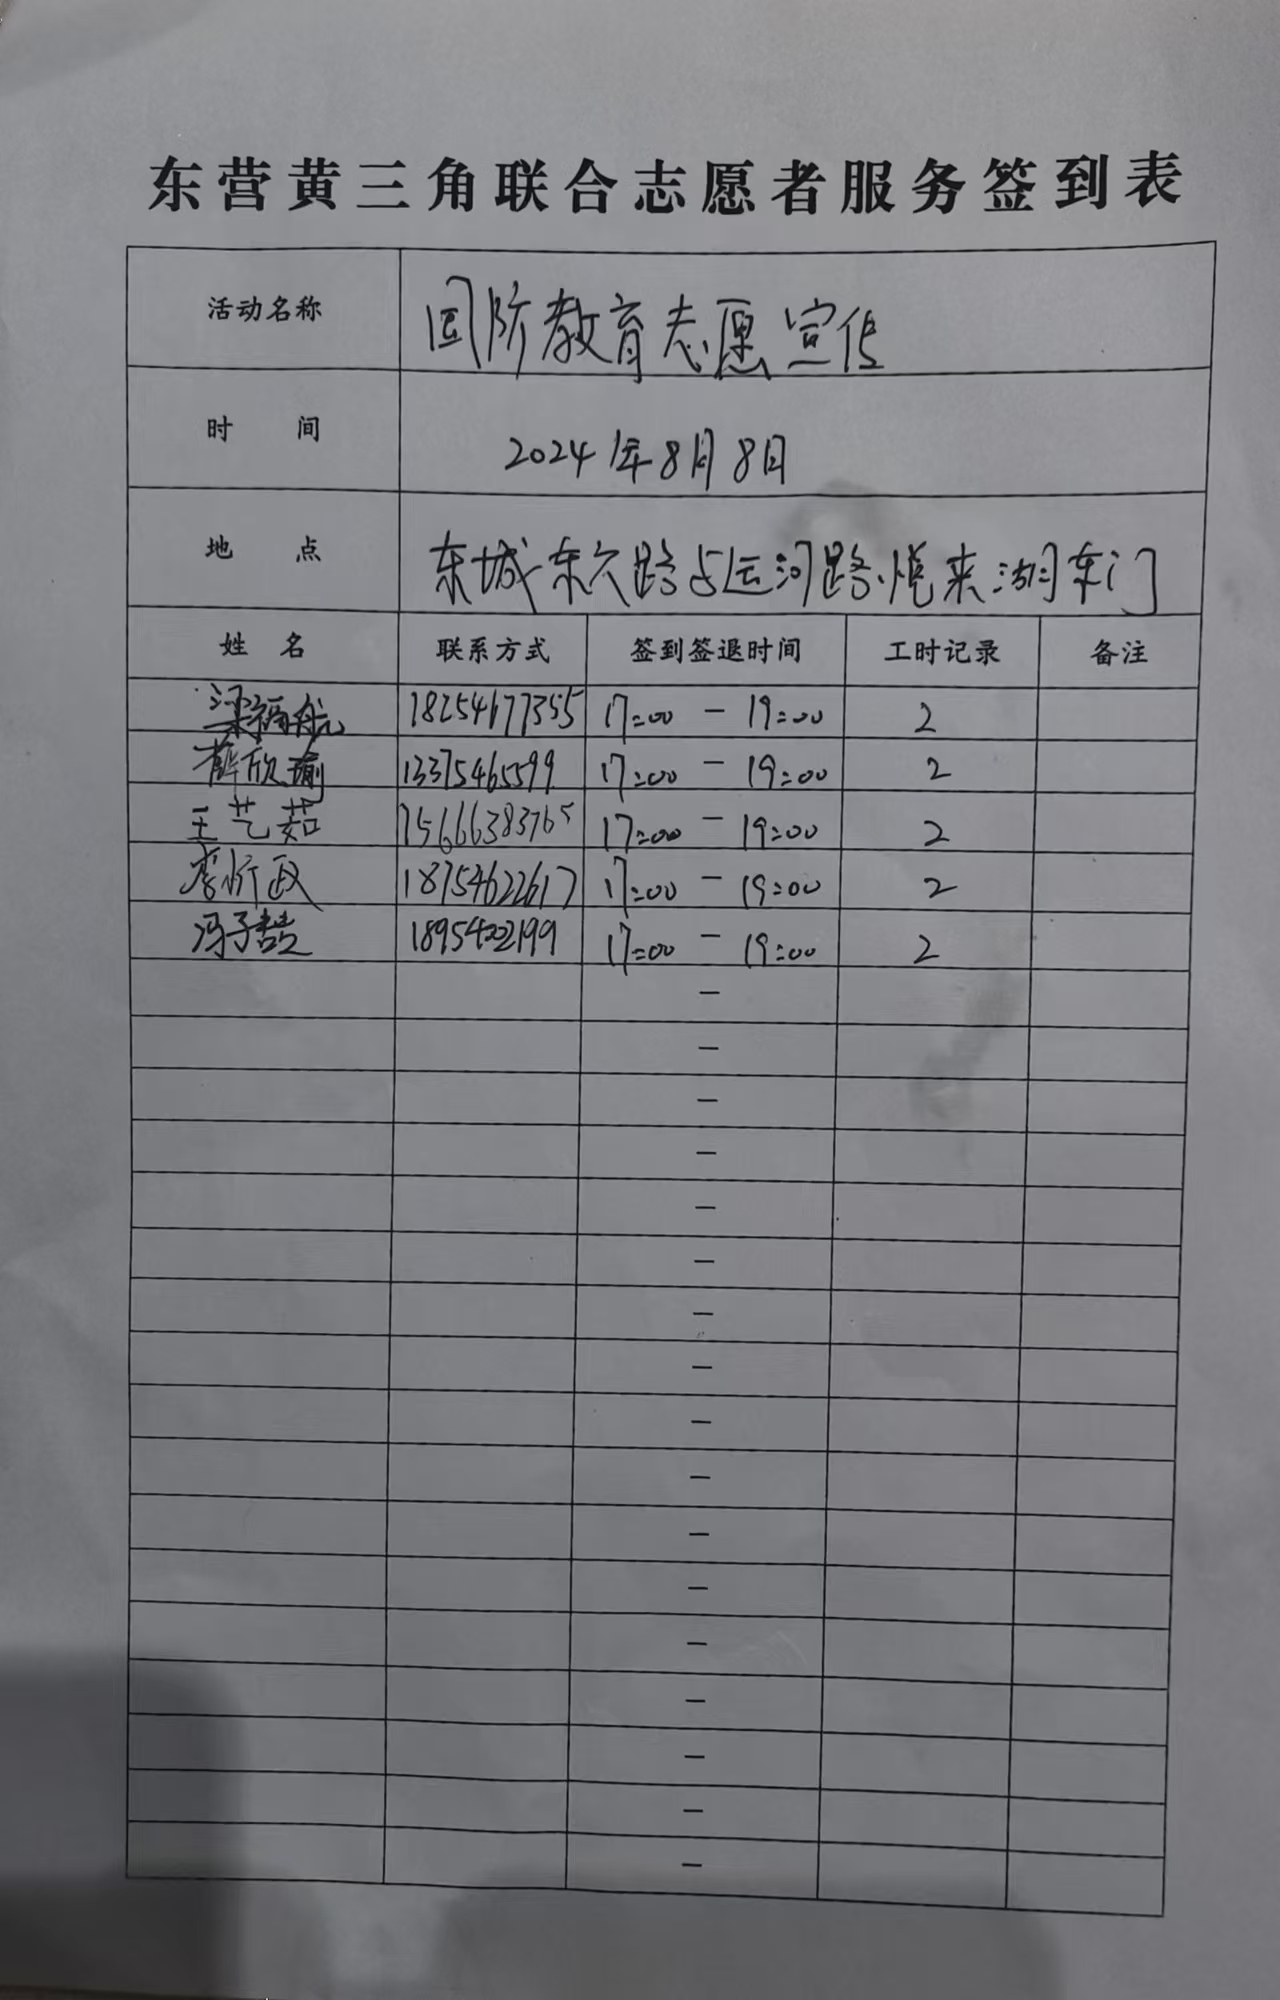 东营黄三角联合志愿者服务签到表
活动名称 国防教育志愿宣传
时 间 2024年8月8日
地 点 东城东六路与运河路悦来湖东门
姓 名 联系方式 签到签退时间 工时记录 备注
梁福航 18254677355 17:00 - 19:00 2
薛欣瑜 13375465599 17:00 - 19:00 2
王艺茹 15666383765 17:00 - 19:00 2
李忻政 18754622617 17:00 - 19:00 2
冯子喆 17:00 - 19:00 2
-
-
-
-
-
-
-
-
-
-
-
-
-
-
-
-
-